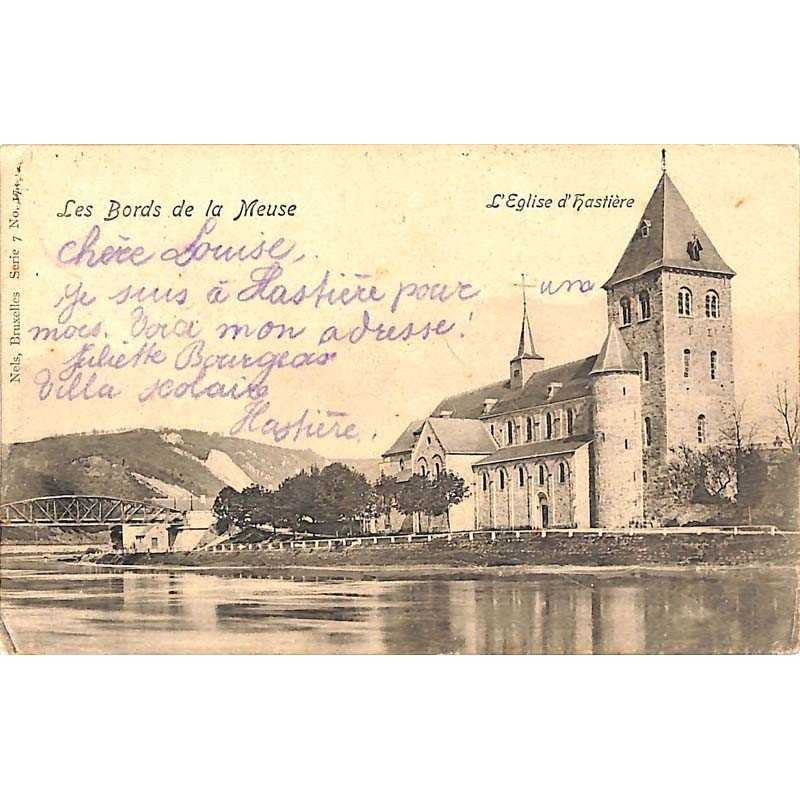 Les Bords de la Meuse
L'Eglise d'Hastière
Chère Louise,
Je suis à Hastière pour un
mois. Voici mon adresse!
Juliette Bourgeois
Villa scolaire
Hastière.
Nels, Bruxelles Serie 7 No.